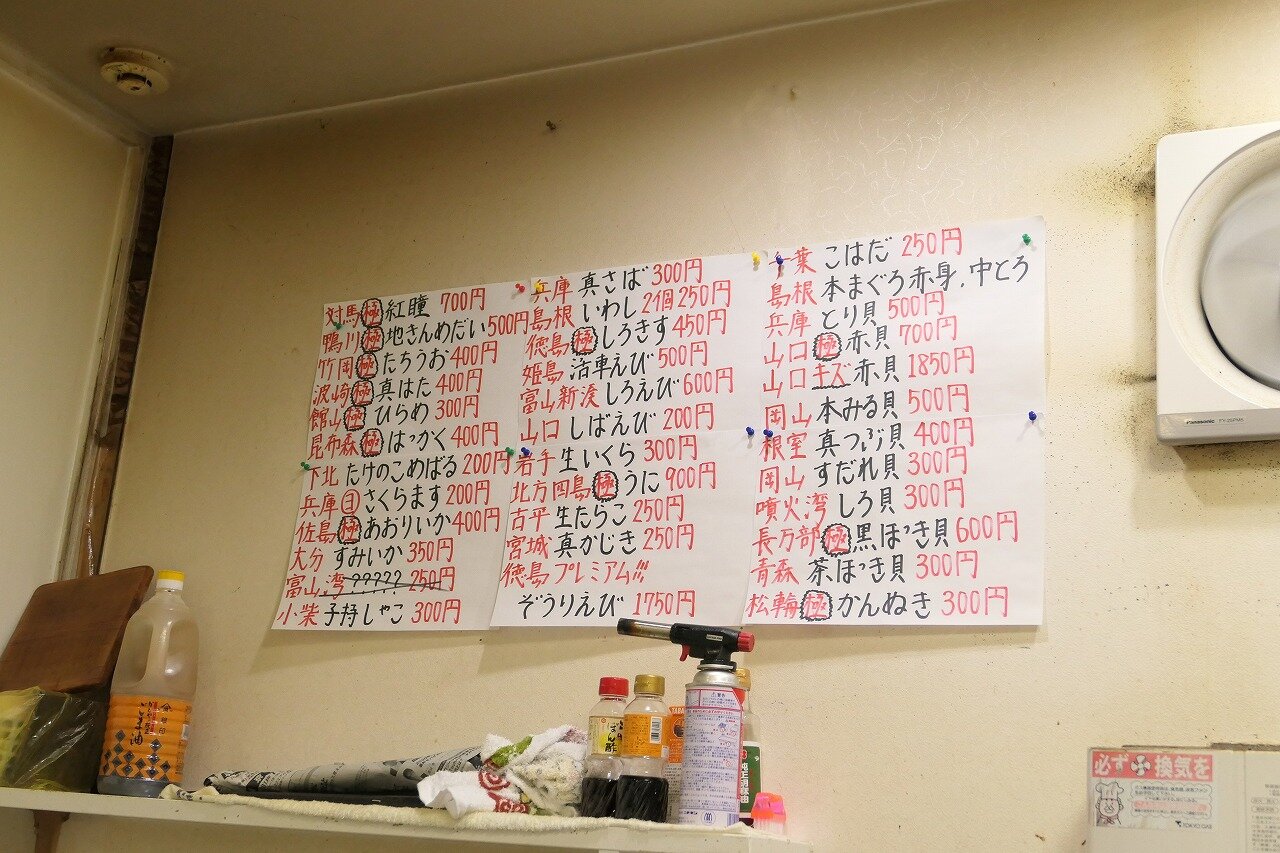 対馬 極 紅瞳 700円
鴨川 極 地きんめだい 500円
竹岡 極 たちうお 400円
波崎 極 真はた 400円
館山 極 ひらめ 300円
昆布森 極 はっかく 400円
下北 たけのこめばる 200円
兵庫 ヨ さくらます 200円
佐島 極 あおりいか 400円
大分 すみいか 350円
富山湾 ????? 250円
小柴 子持しゃこ 300円
兵庫 真さば 300円
島根 いわし 2個 250円
徳島 極 しろきす 450円
姫島 活車えび 500円
富山新湊 しろえび 600円
山口 しばえび 200円
岩手 生いくら 300円
北方四島 極 うに 900円
古平 生たらこ 250円
宮城 真かじき 250円
徳島 プレミアム!!!
ぞうりえび 1750円
千葉 こはだ 250円
島根 本まぐろ赤身.中とろ
兵庫 とり貝 500円
山口 極 赤貝 700円
山口 キズ 赤貝 1850円
岡山 本みる貝 500円
根室 真つぶ貝 400円
岡山 すだれ貝 300円
噴火湾 しろ貝 300円
長万部 極 黒ほっき貝 600円
青森 茶ほっき貝 300円
松輪 極 かんぬき 300円
Panasonic
ごま油
ぽん酢
必ず換気を